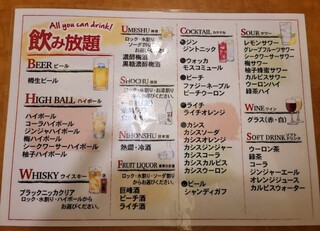 All you can drink!
飲み放題
BEER ビール
樽生ビール
HIGH BALL ハイボール
ハイボール
コーラハイボール
ジンジャハイボール
梅ハイボール
シークワーサーハイボール
柚子ハイボール
WHISKY ウイスキー
ブラックニッカクリア
ロック・水割り・ハイボールから
お選びください。
UMESHU 梅酒
ロック・水割り
ソーダ割り
濃醇梅酒
黒糖濃醇梅酒
SHOCHU 焼酎
NIHONSHU 日本酒
熱燗・冷酒
FRUIT LIQUOR
ロック・水割り・ソーダ割り
からお選びください。
巨峰酒
ピーチ酒
ライチ酒
COCKTAIL カクテル
●ジン
ジントニック
●ウォッカ
モスコミュール
●ピーチ
ファジーネーブル
ピーチウーロン
●ライチ
ライチオレンジ
●カシス
カシスソーダ
カシスオレンジ
カシスウーロン
カシスジンジャー
カシスコーラ
カシスカルピス
カシスウーロン
●ビール
シャンディガフ
SOUR サワー
レモンサワー
シークワーサーサワー
グレープフルーツサワー
梅サワー
柚子蜂蜜サワー
カルピスサワー
ウーロンハイ
緑茶ハイ
WINE ワイン
グラス(赤・白)
SOFT DRINK ソフトドリンク
ウーロン茶
緑茶
コーラ
ジンジャーエール
オレンジジュース
カルピスウォーター